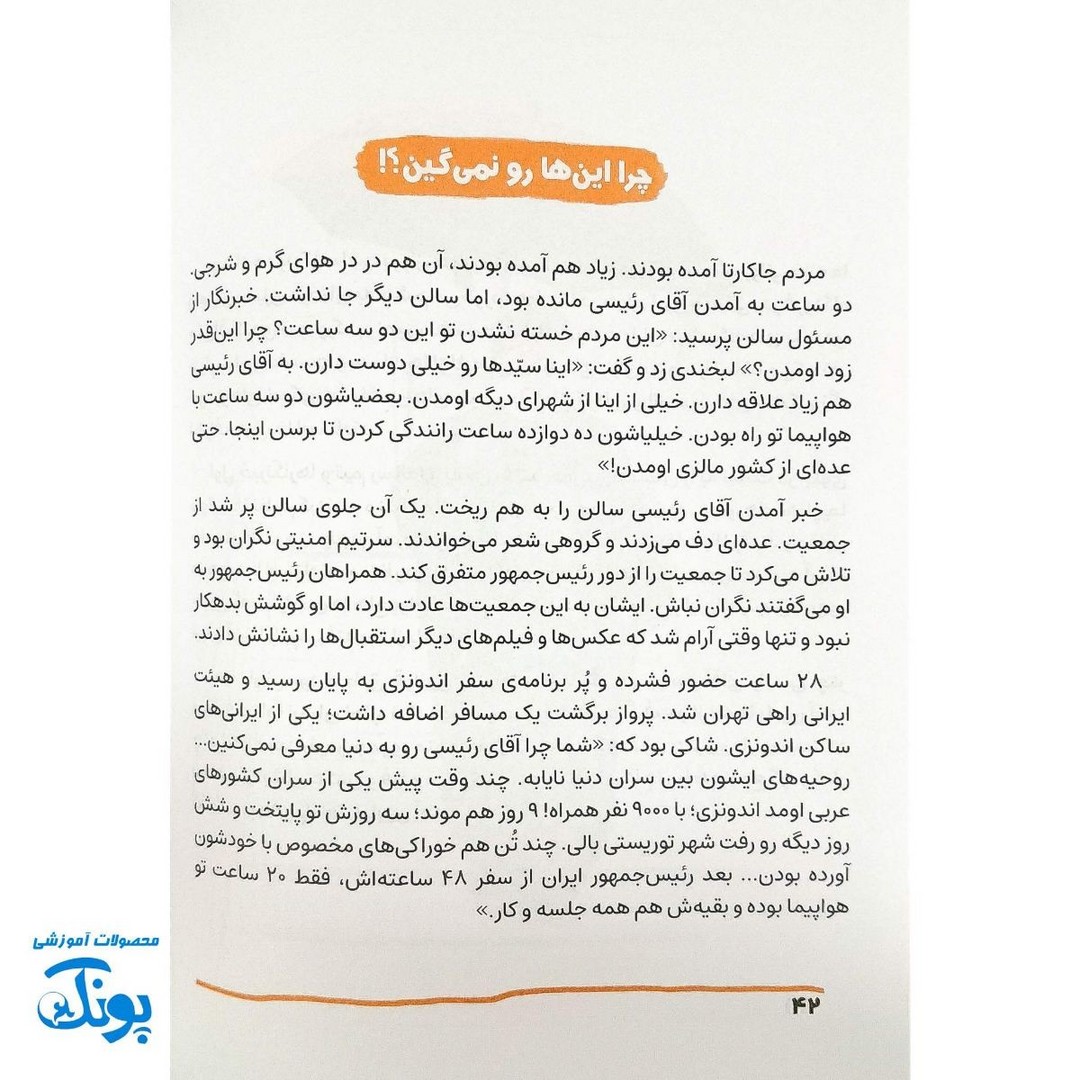 چرا این‌ها رو نمی‌گین؟!
مردم جاکارتا آمده بودند. زیاد هم آمده بودند، آن هم در در هوای گرم و شرجی.
دو ساعت به آمدن آقای رئیسی مانده بود، اما سالن دیگر جا نداشت. خبرنگار از
مسئول سالن پرسید: «این مردم خسته نشدن تو این دو سه ساعت؟ چرا این‌قدر
زود اومدن؟» لبخندی زد و گفت: «اینا سیّدها رو خیلی دوست دارن. به آقای رئیسی
هم زیاد علاقه دارن. خیلی از اینا از شهرای دیگه اومدن. بعضیاشون دو سه ساعت با
هواپیما تو راه بودن. خیلیاشون ده دوازده ساعت رانندگی کردن تا برسن اینجا. حتی
عده‌ای از کشور مالزی اومدن!»
خبر آمدن آقای رئیسی سالن را به هم ریخت. یک آن جلوی سالن پر شد از
جمعیت. عده‌ای دف می‌زدند و گروهی شعر می‌خواندند. سرتیم امنیتی نگران بود و
تلاش می‌کرد تا جمعیت را از دور رئیس‌جمهور متفرق کند. همراهان رئیس‌جمهور به
او می‌گفتند نگران نباش. ایشان به این جمعیت‌ها عادت دارد، اما او گوشش بدهکار
نبود و تنها وقتی آرام شد که عکس‌ها و فیلم‌های دیگر استقبال‌ها را نشانش دادند.
۲۸ ساعت حضور فشرده و پُر برنامه‌ی سفر اندونزی به پایان رسید و هیئت
ایرانی راهی تهران شد. پرواز برگشت یک مسافر اضافه داشت؛ یکی از ایرانی‌های
ساکن اندونزی. شاکی بود که: «شما چرا آقای رئیسی رو به دنیا معرفی نمی‌کنین...
روحیه‌های ایشون بین سران دنیا نایابه. چند وقت پیش یکی از سران کشورهای
عربی اومد اندونزی؛ با ۹۰۰۰ نفر همراه! ۹ روز هم موند؛ سه روزش تو پایتخت و شش
روز دیگه رو رفت شهر توریستی بالی. چند تُن هم خوراکی‌های مخصوص با خودشون
آورده بودن... بعد رئیس‌جمهور ایران از سفر ۴۸ ساعته‌اش، فقط ۲۰ ساعت تو
هواپیما بوده و بقیه‌ش هم همه جلسه و کار.»
۴۲
محصولات آموزشی
پونک